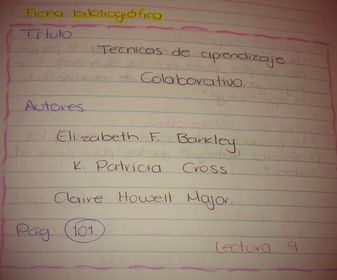 Ficha bibliográfica
Titulo
Tecnicas de aprendizaje
Colaborativo
Autores
Elizabeth F. Barkley
K. Patricia Cross
Claire Howell Major.
Pág. 101
Lectura 9